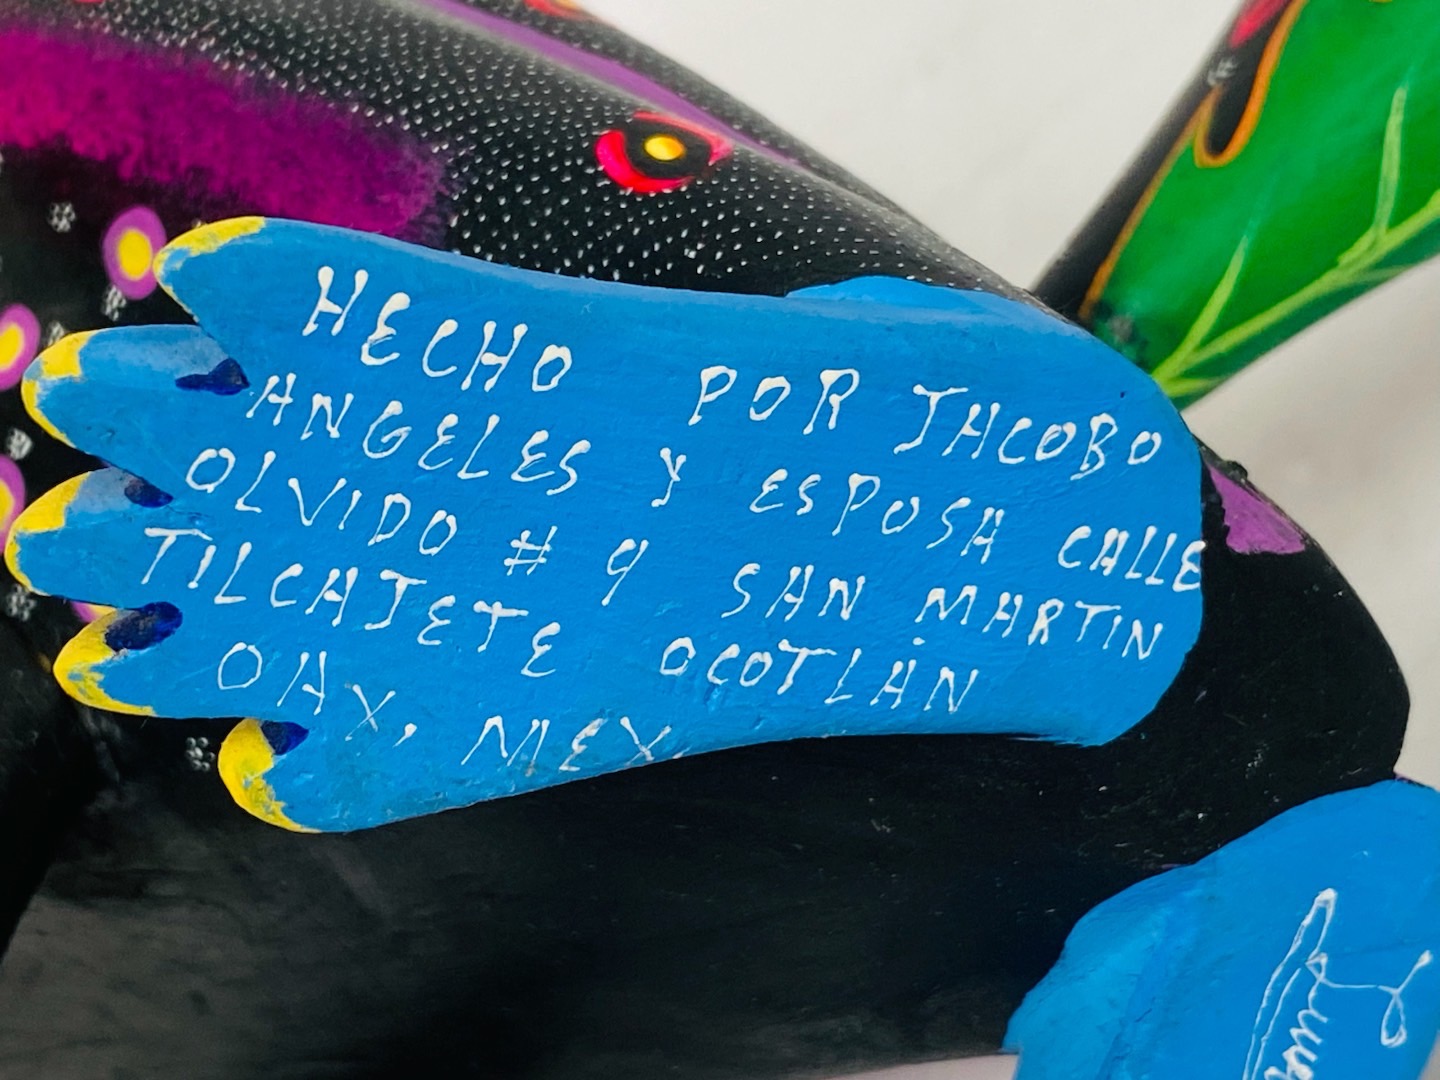 HECHO POR JACOBO
ANGELES Y ESPOSA CALLE
OLVIDO # 9 SAN MARTIN
TILCAJETE OCOTLAN
OAX, MEX.